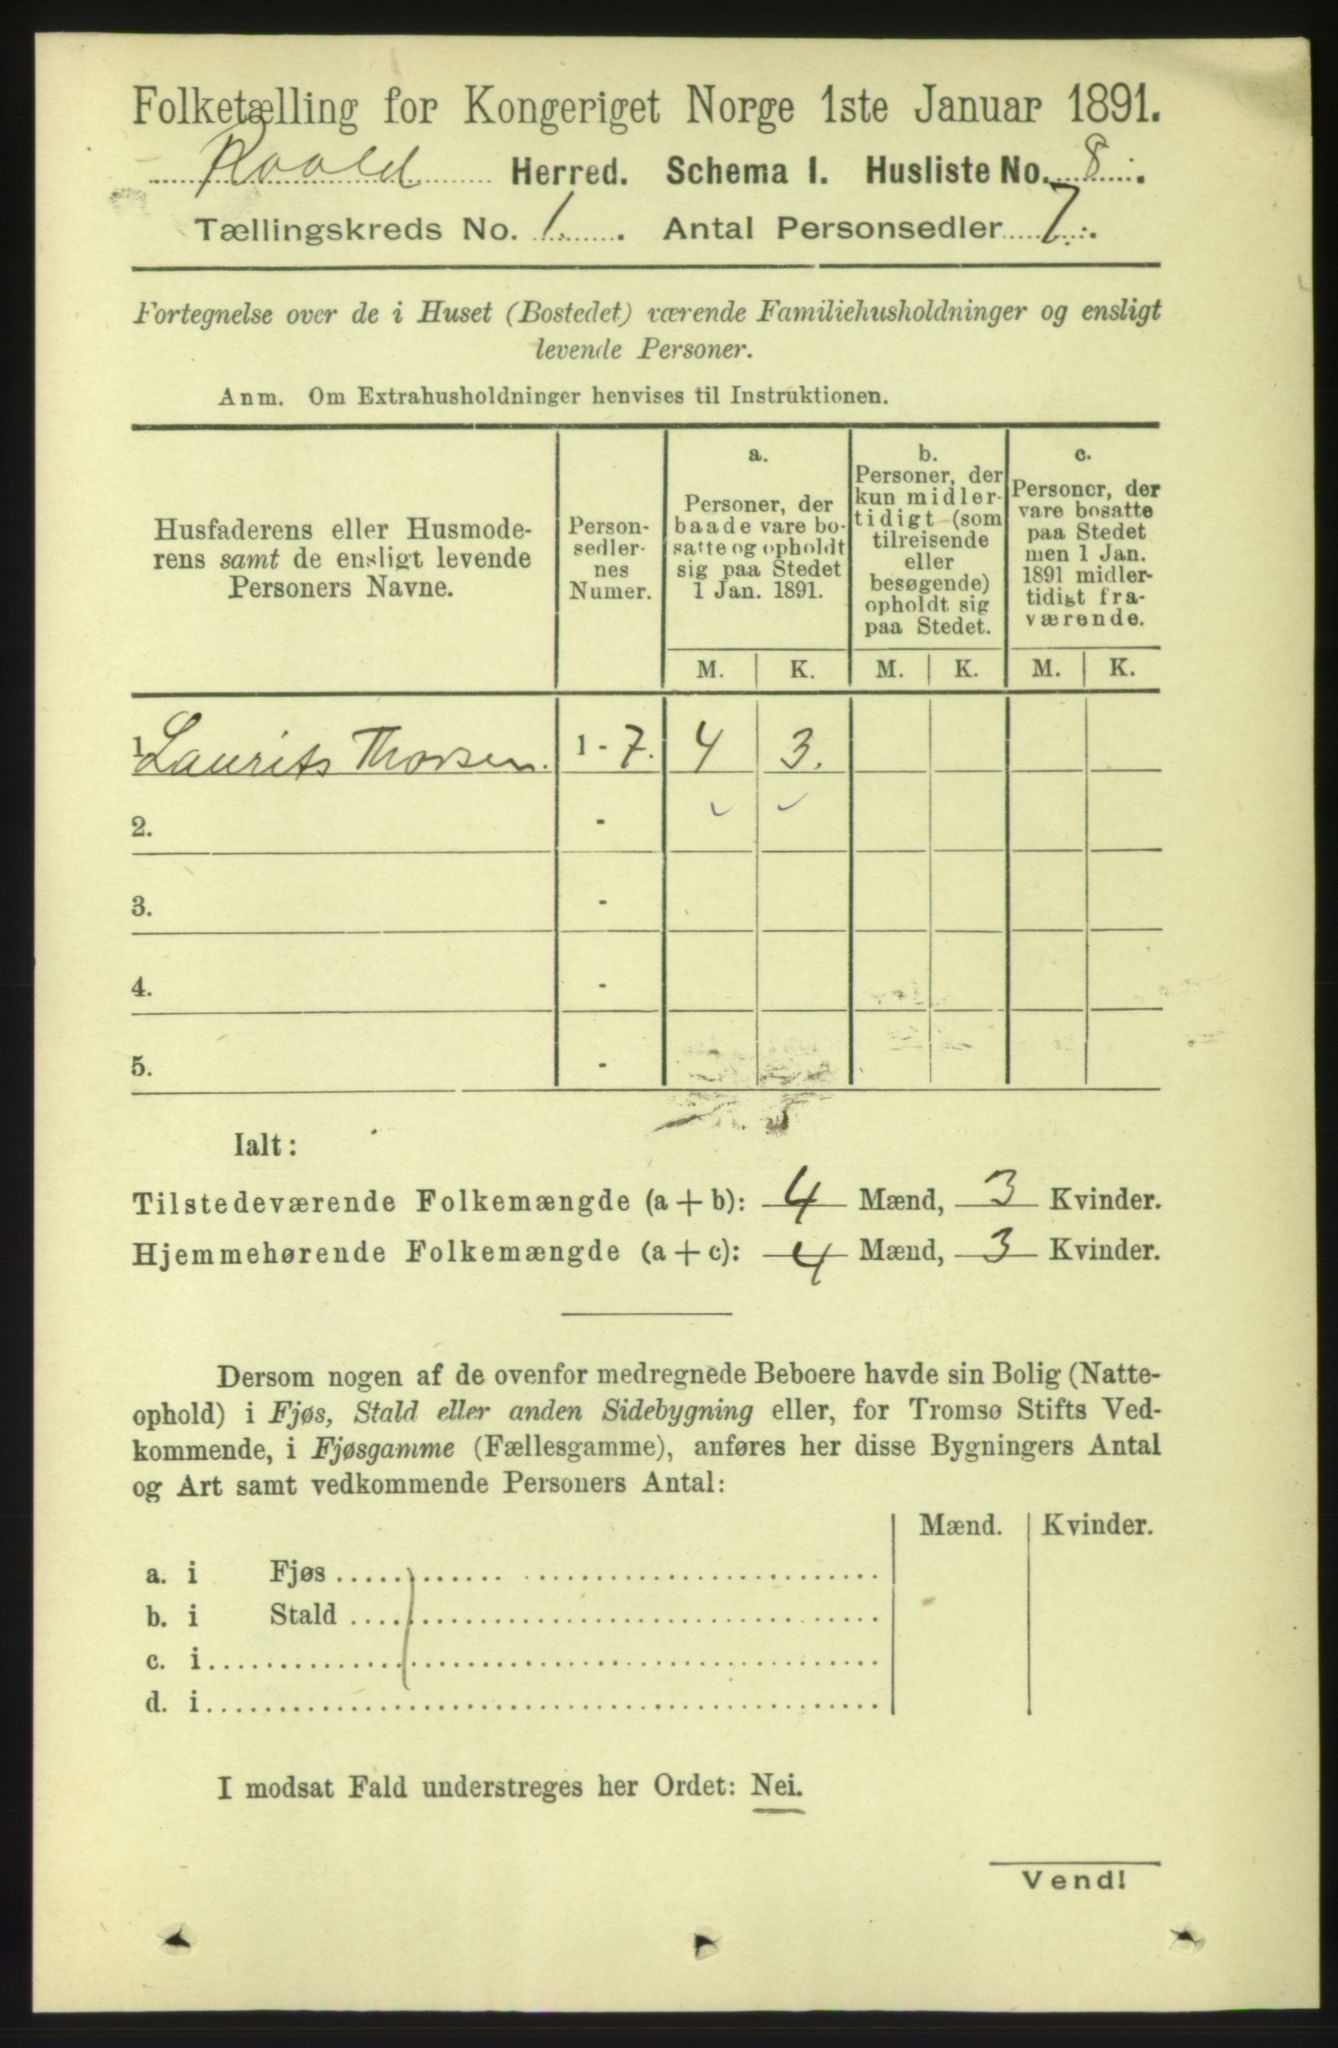 Folketælling for Kongeriget Norge 1ste Januar 1891.
Roald Herred. Schema I. Husliste No. 8.
Tællingskreds No. 1. Antal Personsedler 7.
Fortegnelse over de i Huset (Bostedet) værende Familiehusholdninger og ensligt
levende Personer.
Anm. Om Extrahusholdninger henvises til Instruktionen.
Husfaderens eller Husmode-
rens samt de ensligt levende
Personers Navne.
Person-
sedler-
nes
Numer.
a.
Personer, der
baade vare bo-
satte og opholdt
sig paa Stedet
1 Jan. 1891.
b.
Personer, der
kun midler-
tidigt (som
tilreisende
eller
besøgende)
opholdt sig
paa Stedet.
c.
Personer, der
vare bosatte
paa Stedet
men 1 Jan.
1891 midler-
tidigt fra-
værende.
M. K. M. K. M. K.
1. Laurits Thorsen. 1 - 7. 4 3.
2. -
3. -
4. -
5. -
Ialt:
Tilstedeværende Folkemængde (a + b): 4 Mænd, 3 Kvinder.
Hjemmehørende Folkemængde (a + c): 4 Mænd, 3 Kvinder.
Dersom nogen af de ovenfor medregnede Beboere havde sin Bolig (Natte-
ophold) i Fjøs, Stald eller anden Sidebygning eller, for Tromsø Stifts Ved-
kommende, i Fjøsgamme (Fællesgamme), anføres her disse Bygningers Antal
og Art samt vedkommende Personers Antal:
Mænd. Kvinder.
a. i Fjøs
b. i Stald
c. i
d. i
I modsat Fald understreges her Ordet: Nei.
Vend!